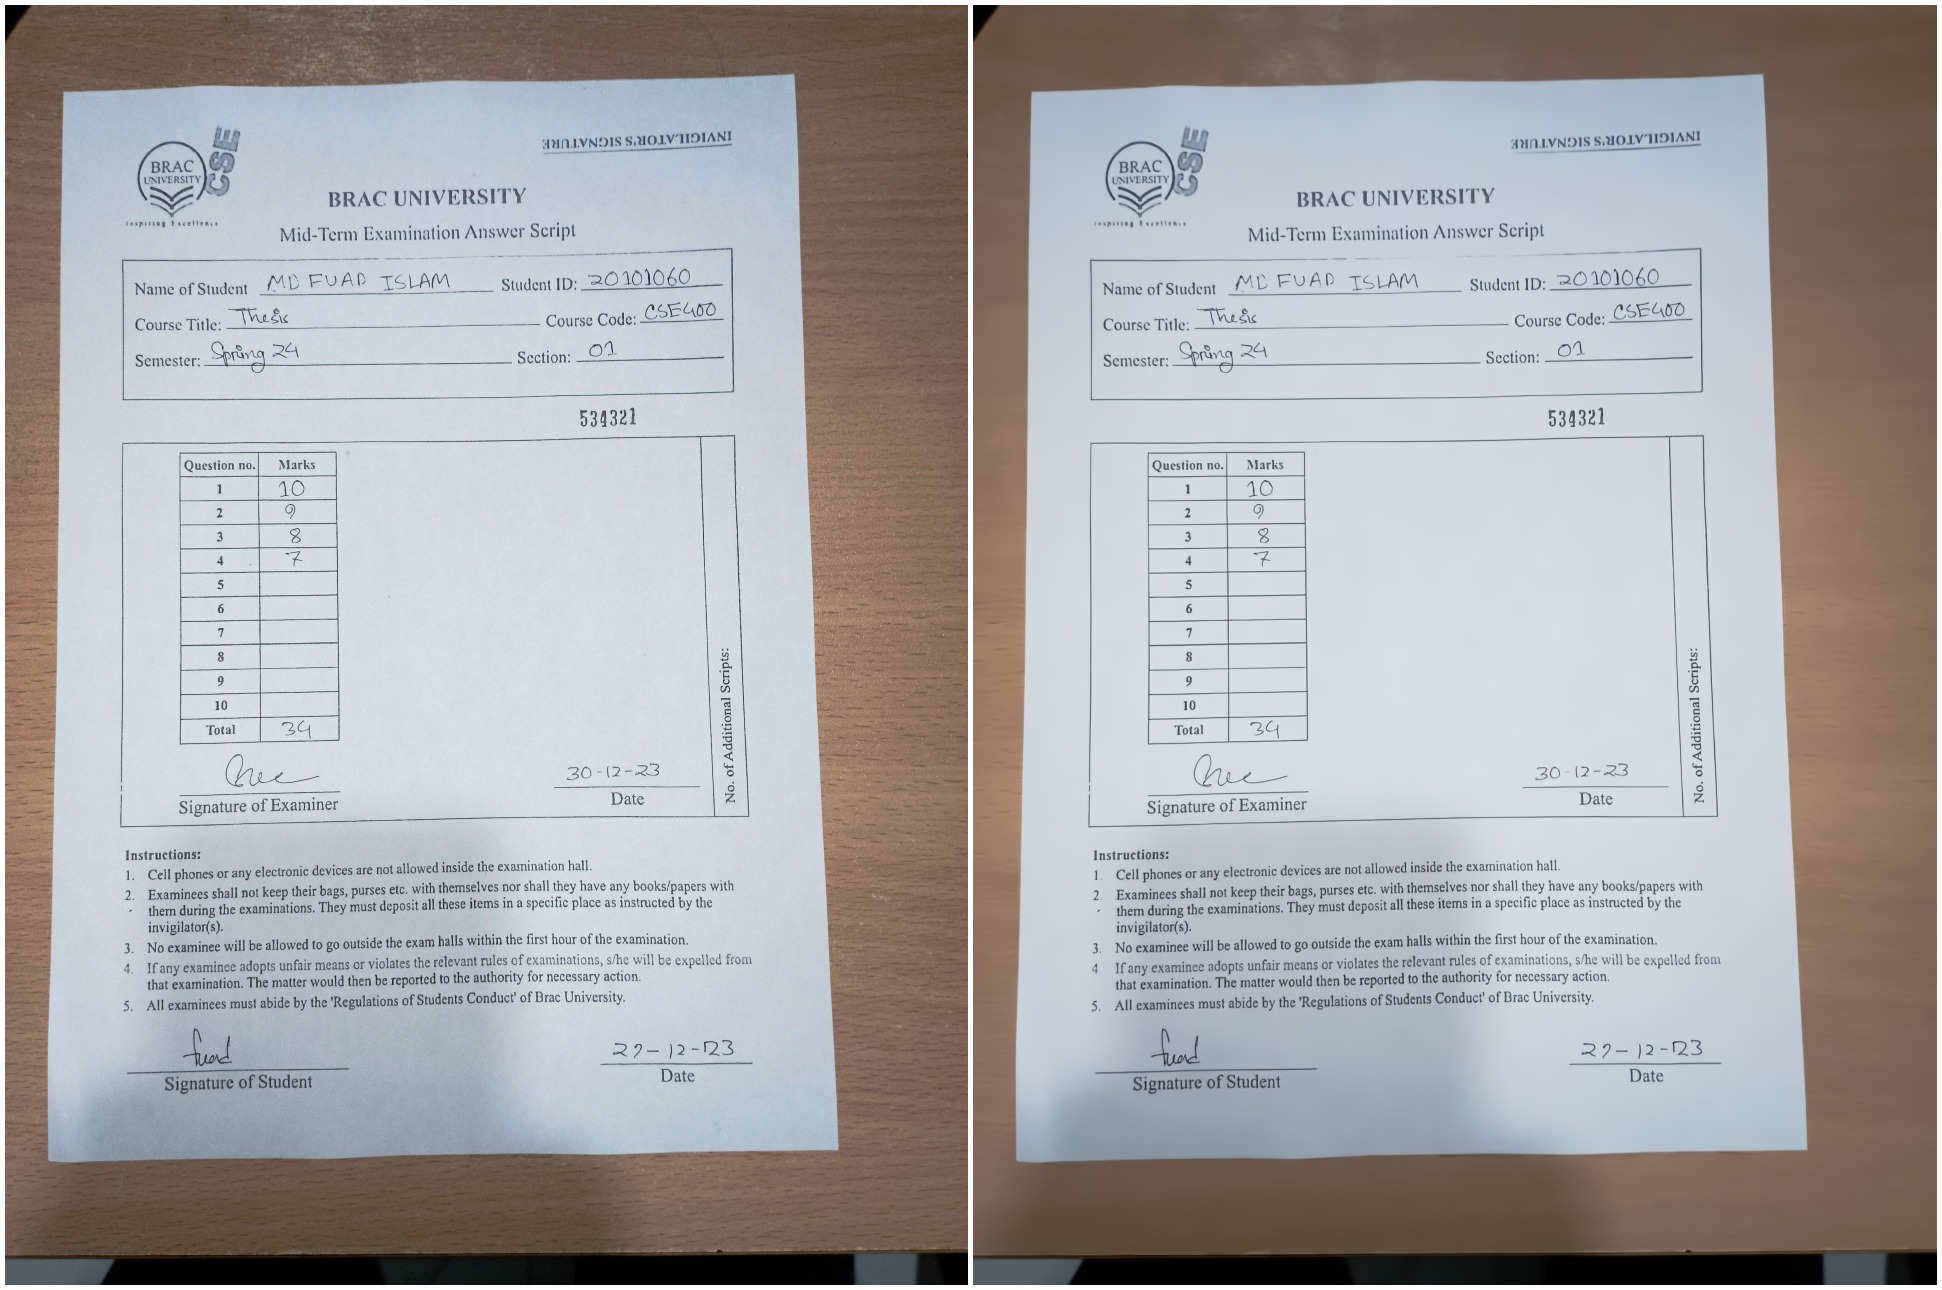 BRAC
UNIVERSITY
CSE
Inspiring Excellence
INVIGILATOR'S SIGNATURE
BRAC UNIVERSITY
Mid-Term Examination Answer Script
Name of Student MD FUAD ISLAM Student ID: 20101060
Course Title: Thesis Course Code: CSE400
Semester: Spring 24 Section: 01
534321
Question no. Marks
1 10
2 9
3 8
4 7
5
6
7
8
9
10
Total 34
Signature of Examiner
30-12-23
Date
No. of Additional Scripts:
Instructions:
1. Cell phones or any electronic devices are not allowed inside the examination hall.
2. Examinees shall not keep their bags, purses etc. with themselves nor shall they have any books/papers with
them during the examinations. They must deposit all these items in a specific place as instructed by the
invigilator(s).
3. No examinee will be allowed to go outside the exam halls within the first hour of the examination.
4. If any examinee adopts unfair means or violates the relevant rules of examinations, s/he will be expelled from
that examination. The matter would then be reported to the authority for necessary action.
5. All examinees must abide by the 'Regulations of Students Conduct' of Brac University.
fuad
Signature of Student
29-12-23
Date
BRAC
UNIVERSITY
CSE
Inspiring Excellence
INVIGILATOR'S SIGNATURE
BRAC UNIVERSITY
Mid-Term Examination Answer Script
Name of Student MD FUAD ISLAM Student ID: 20101060
Course Title: Thesis Course Code: CSE400
Semester: Spring 24 Section: 01
534321
Question no. Marks
1 10
2 9
3 8
4 7
5
6
7
8
9
10
Total 34
Signature of Examiner
30-12-23
Date
No. of Additional Scripts:
Instructions:
1. Cell phones or any electronic devices are not allowed inside the examination hall.
2. Examinees shall not keep their bags, purses etc. with themselves nor shall they have any books/papers with
them during the examinations. They must deposit all these items in a specific place as instructed by the
invigilator(s).
3. No examinee will be allowed to go outside the exam halls within the first hour of the examination.
4 If any examinee adopts unfair means or violates the relevant rules of examinations, s/he will be expelled from
that examination. The matter would then be reported to the authority for necessary action.
5. All examinees must abide by the 'Regulations of Students Conduct' of Brac University.
fuad
Signature of Student
29-12-23
Date